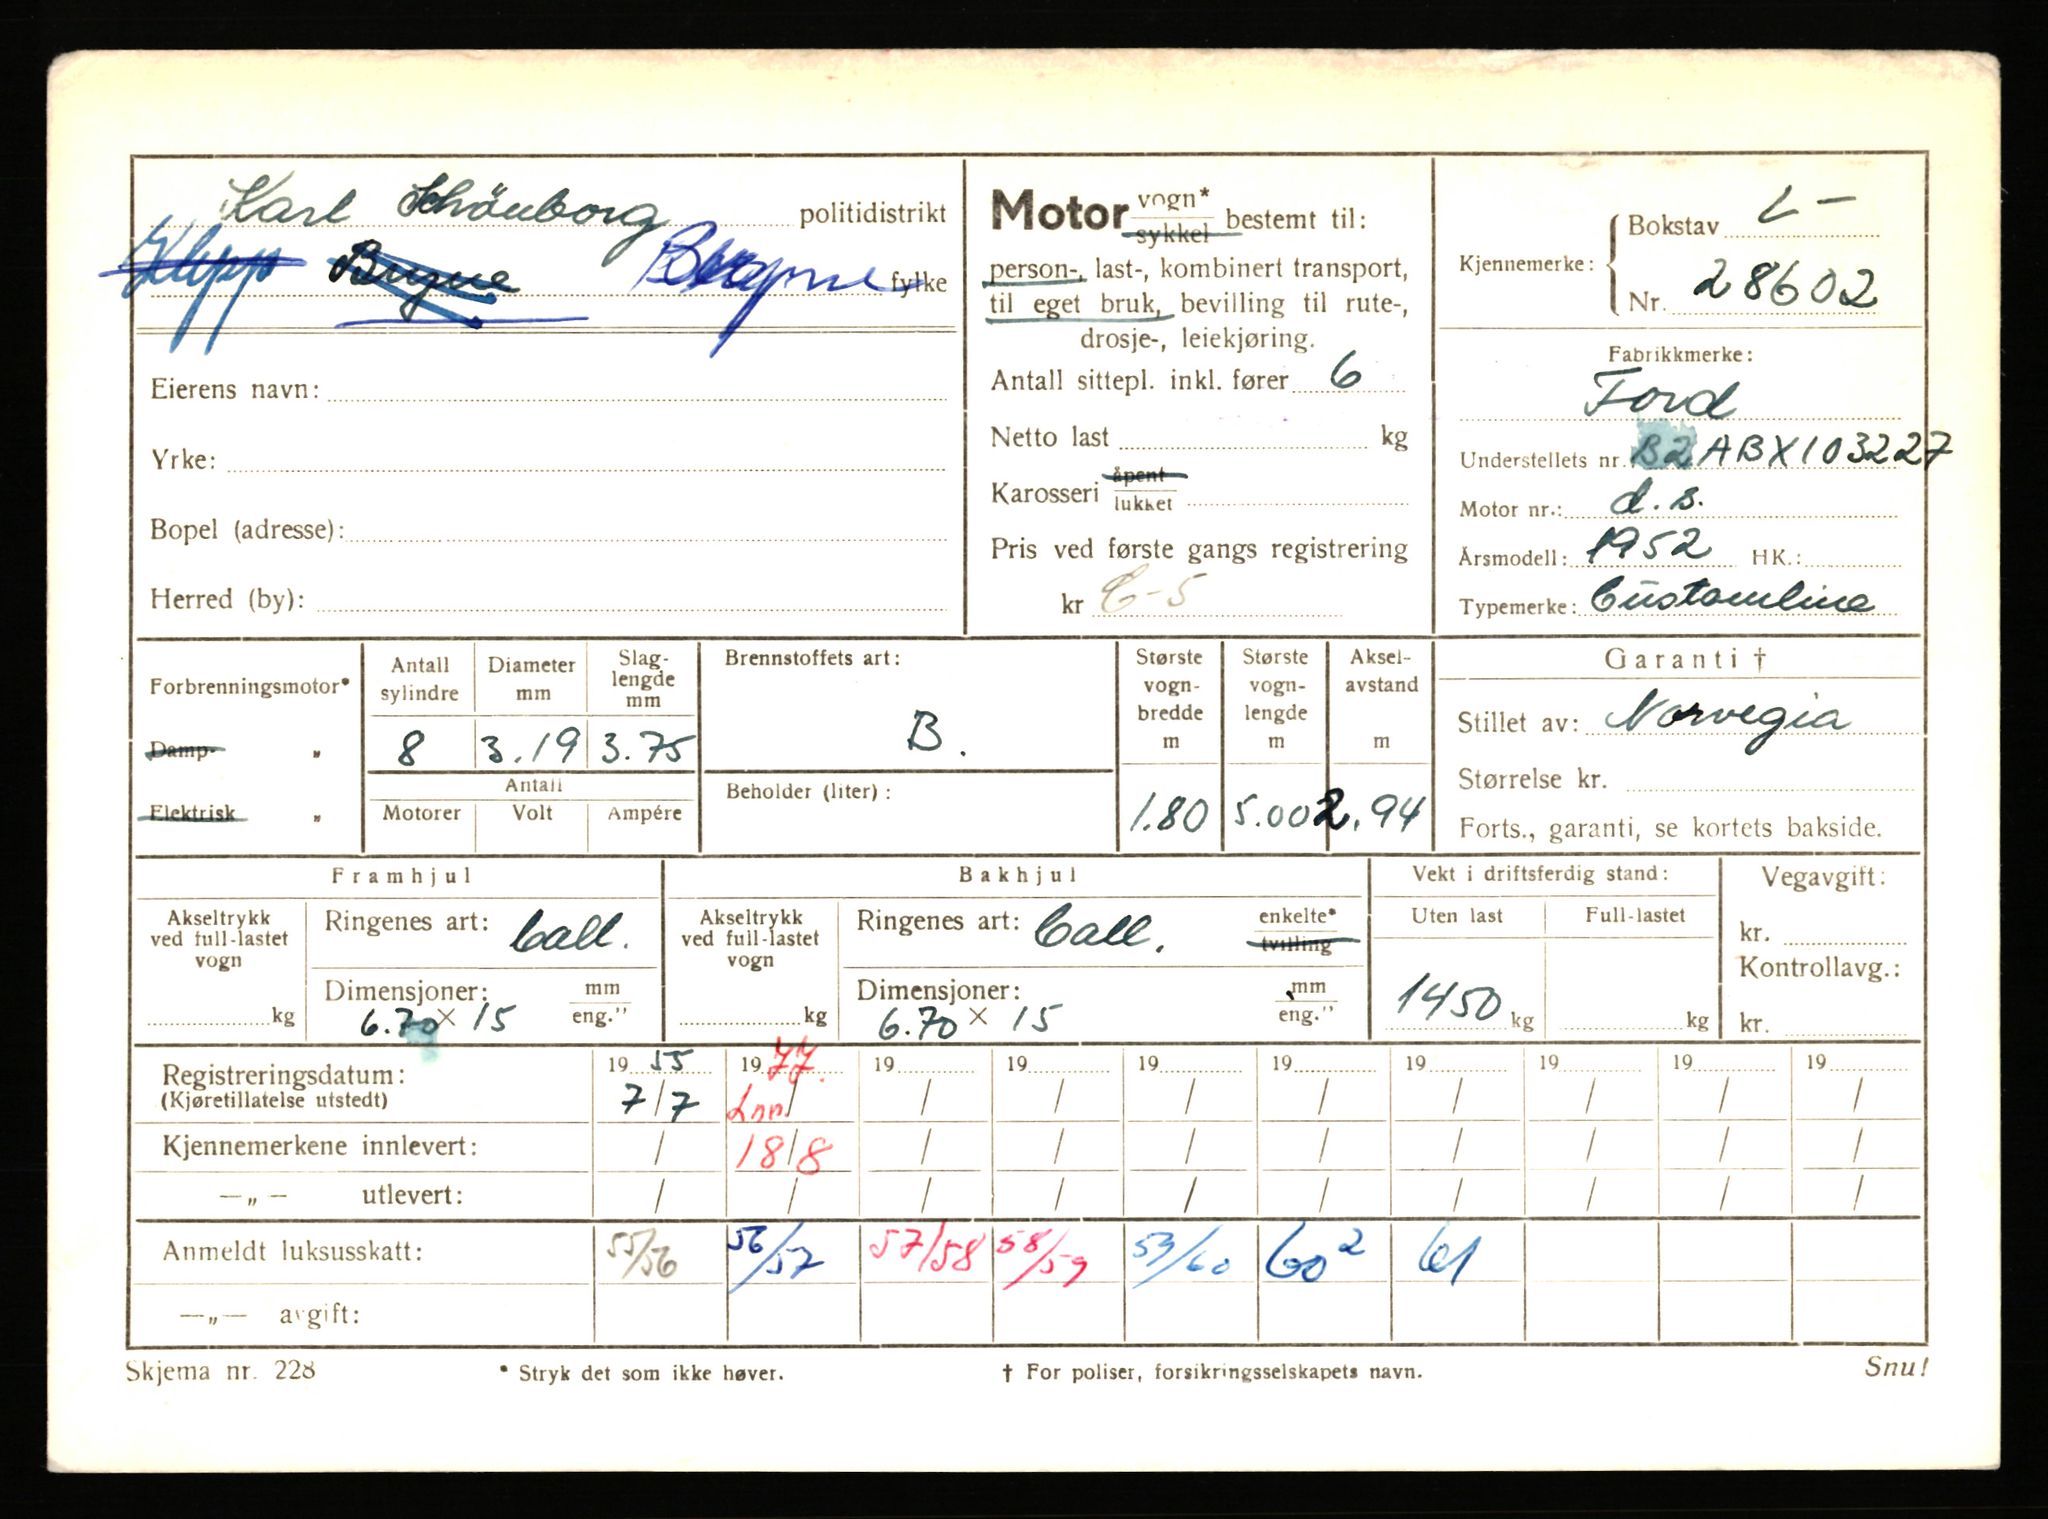 Karl Schönborg politidistrikt
Klepp Bryne Bryne fylke
Eierens navn:
Yrke:
Bopel (adresse):
Herred (by):
Motor vogn* sykkel bestemt til:
person-, last-, kombinert transport,
til eget bruk, bevilling til rute-,
drosje-, leiekjøring.
Antall sittepl. inkl. fører 6
Netto last kg
Karosseri åpent lukket
Pris ved første gangs registrering
kr C-5
Kjennemerke: Bokstav L-
Nr. 28602
Fabrikkmerke:
Ford
Understellets nr. B2ABX103227
Motor nr.: d.s.
Årsmodell: 1952 HK.:
Typemerke: Customline
Forbrenningsmotor*
Damp- „
Elektrisk „
Antall sylindre Diameter mm Slag-lengde mm
8 3.19 3.75
Antall
Motorer Volt Ampére
Brennstoffets art:
B.
Beholder (liter):
Største vogn-bredde m Største vogn-lengde m Aksel-avstand m
1.80 5.00 2.94
Garanti †
Stillet av: Norvegia
Størrelse kr.
Forts., garanti, se kortets bakside.
Framhjul
Akseltrykk ved full-lastet vogn
kg
Ringenes art: Call.
Dimensjoner: mm eng."
6.70 × 15
Bakhjul
Akseltrykk ved full-lastet vogn
kg
Ringenes art: Call. enkelte* tvilling
Dimensjoner: mm eng."
6.70 × 15
Vekt i driftsferdig stand:
Uten last Full-lastet
1450 kg kg
Vegavgift:
kr.
Kontrollavg.:
kr.
Registreringsdatum: 19 55 19 77. 19 19 19 19 19 19 19 19
(Kjøretillatelse utstedt) 7/7 Inn. / / / / / / / / /
Kjennemerkene innlevert: / 18/8 / / / / / / / /
—„— utlevert: / / / / / / / / / /
Anmeldt luksusskatt: 55/56 56/57 57/58 58/59 53/60 60² 61
—„— avgift:
Skjema nr. 228 * Stryk det som ikke høver. † For poliser, forsikringsselskapets navn. Snu!